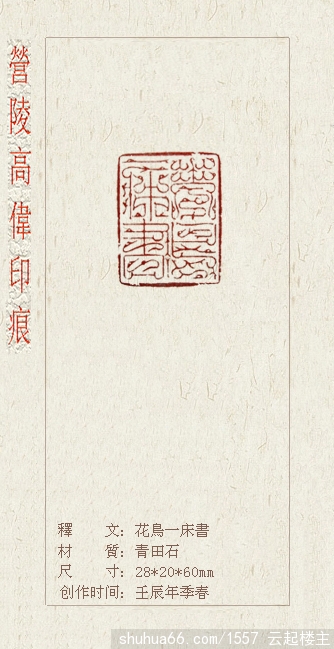 營陵高偉印痕
花鳥一床書
釋 文：花鳥一床書
材 質：青田石
尺 寸：28*20*60mm
创作时间：壬辰年季春
shuhua66.com/1557 云起楼主